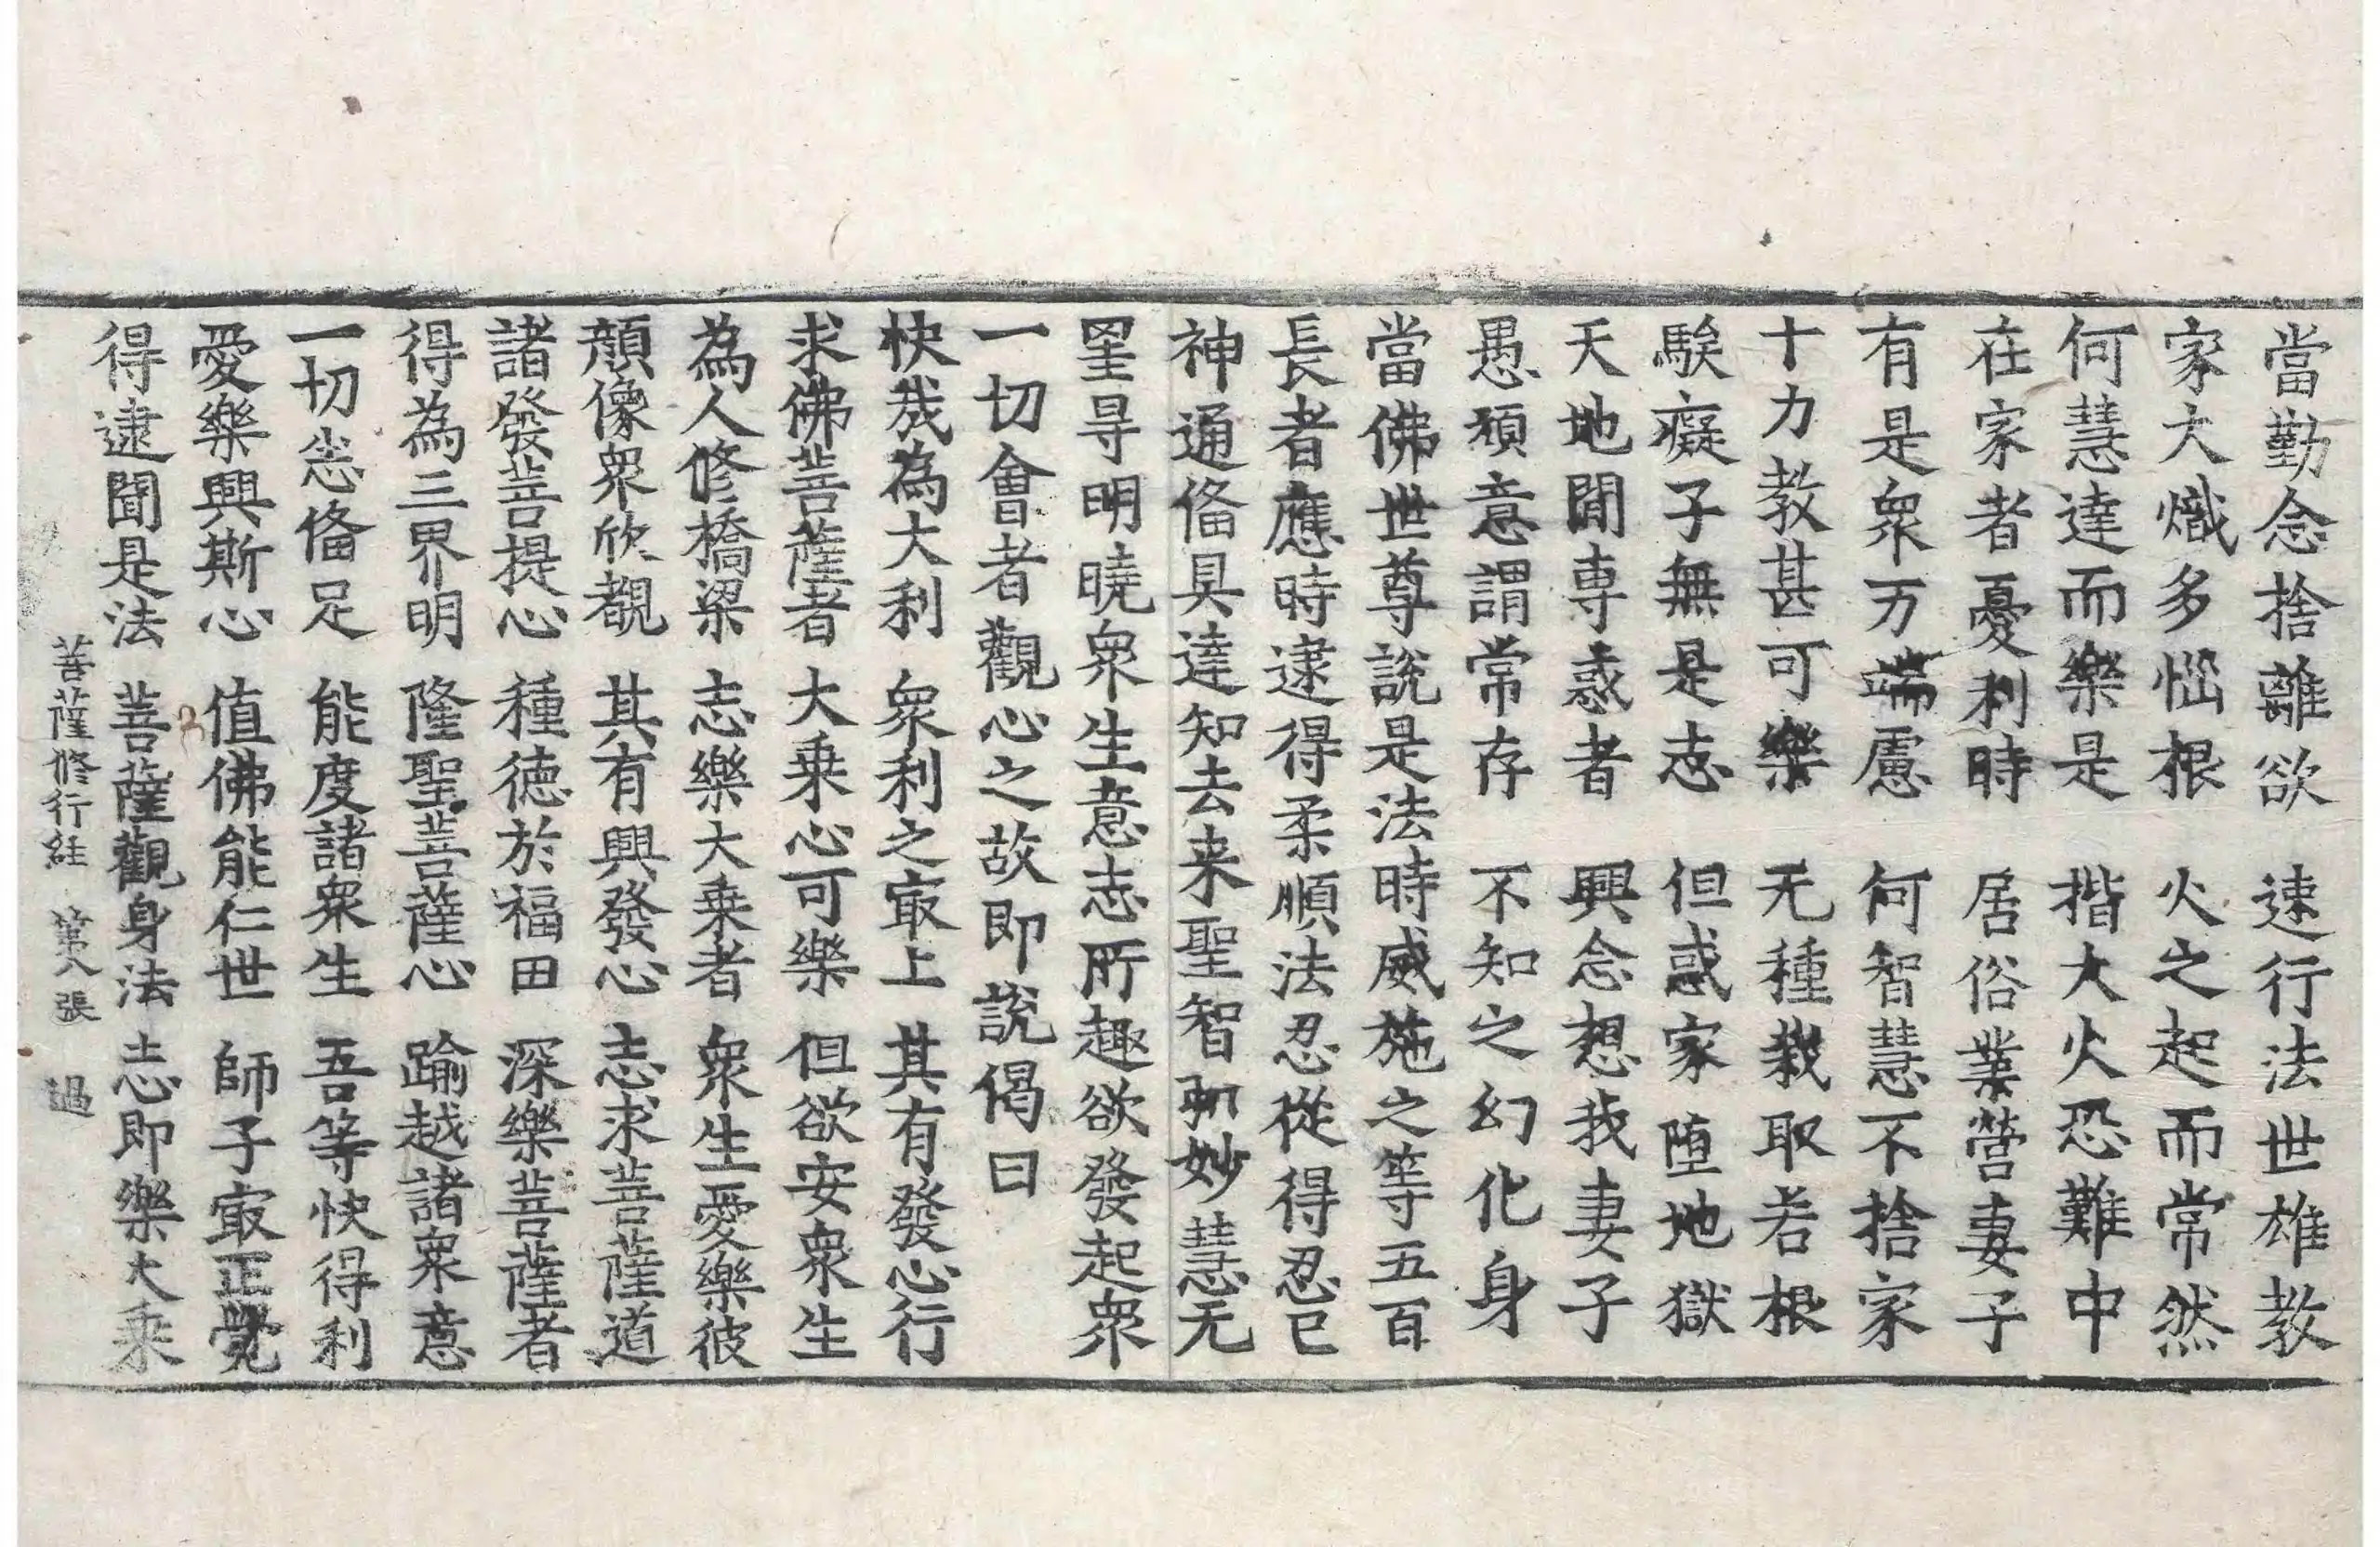 當勤念捨離欲 速行法世雄教
家大熾多惱根 火之起而常然
何慧達而樂是 揩大火恐難中
在家者憂利時 居俗業營妻子
有是衆万端慮 何智慧不捨家
十力教甚可樂 无種栽取若根
騃癡子無是志 但惑家墮地獄
天地閒專惑者 興念想我妻子
愚頑意謂常存 不知之幻化身
當佛世尊說是法時威施之等五百
長者應時逮得柔順法忍從得忍已
神通俻具達知去来聖智㣲妙慧无
罣㝵明曉衆生意志所趣欲發起衆
一切會者觀心之故即說偈曰
快㦲為大利 衆利之㝡上 其有發心行
求佛菩薩者 大乗心可樂 但欲安衆生
為人修橋梁 志樂大乗者 衆生愛樂彼
顏像衆欣覩 其有興發心 志求菩薩道
諸發菩提心 種德於福田 深樂菩薩者
得為三界明 隆聖菩薩心 踰越諸衆意
一切悉俻足 能度諸衆生 吾等快得利
愛樂興斯心 值佛能仁世 師子㝡正覺
得逮聞是法 菩薩觀身法 志即樂大乗
菩薩修行経 第八張 過